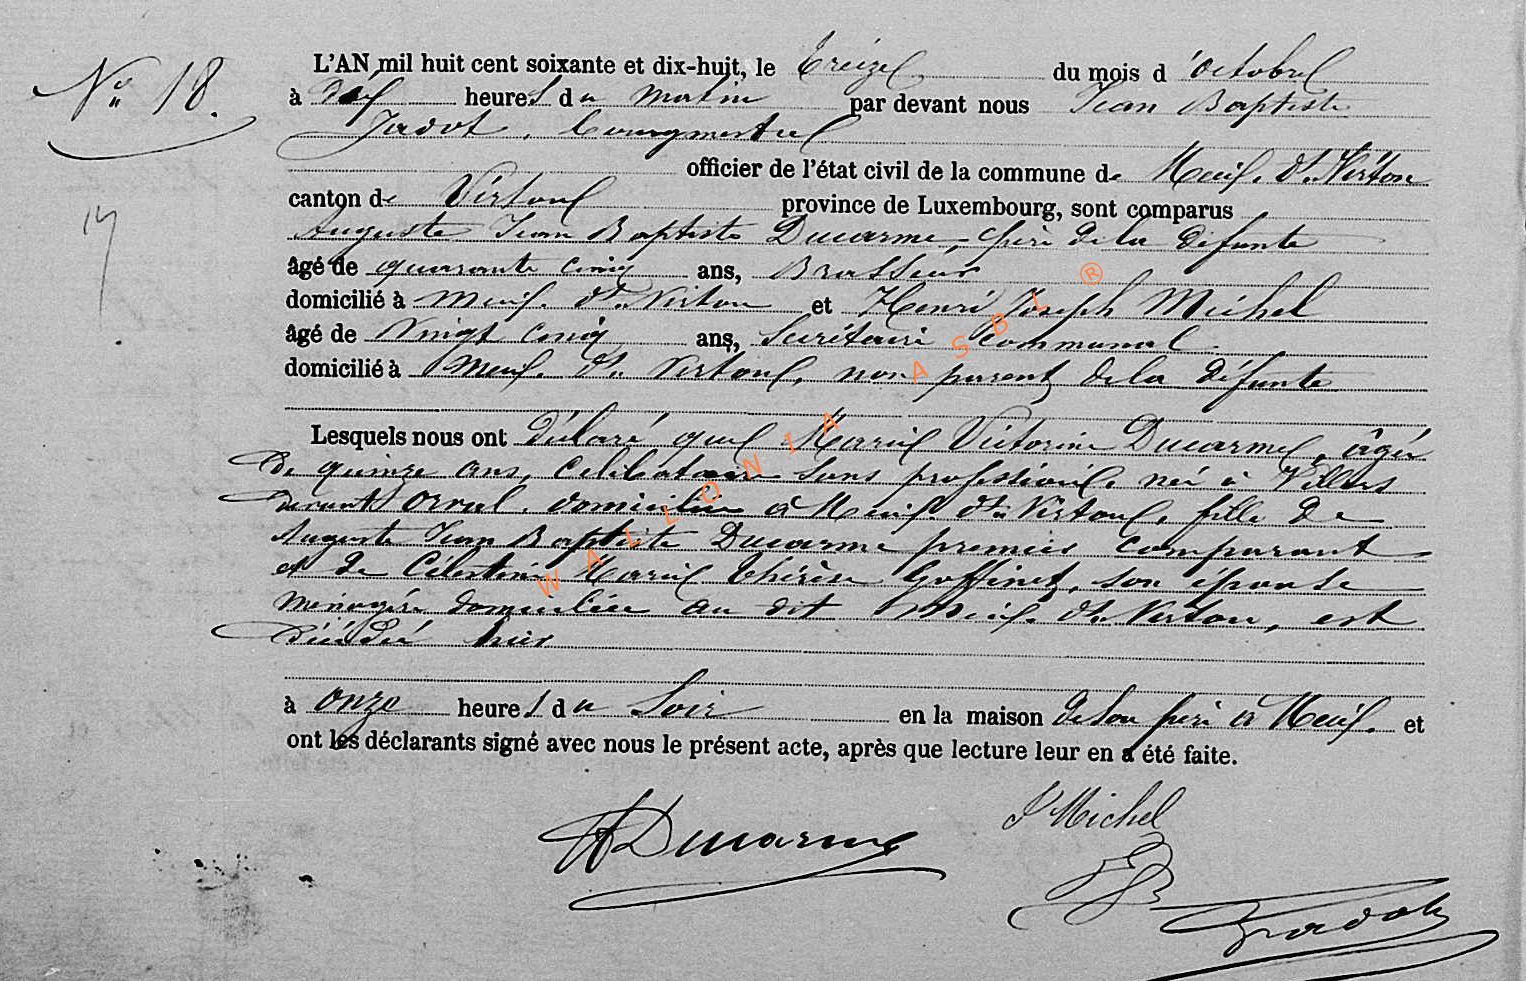 N° 18.
L'AN mil huit cent soixante et dix-huit, le treize du mois d'octobre
à dix heures du matin par devant nous Jean Baptiste
Jadot, bourgmestre
officier de l'état civil de la commune de Meix. dt. Virton
canton de Virton province de Luxembourg, sont comparus
Auguste Jean Baptiste Ducarme, père de la défunte
âgé de quarante cinq ans, Brasseur
domicilié à Meix. dt. Virton et Henri Joseph Michel
âgé de Vingt cinq ans, Secrétaire Communal
domicilié à Meix. dt. Virton, non parent de la défunte
Lesquels nous ont déclaré que Marie Victorine Ducarme, âgée
de quinze ans, célibataire sans profession, née à Villers
devant Orval, domiciliée à Meix dt. Virton, fille de
Auguste Jean Baptiste Ducarme premier comparant
et de Célestine Marie Thérèse Goffinet, son épouse
ménagère domiciliée au dit Meix. dt. Virton, est
décédée hier
à onze heures du soir en la maison de son père à Meix. et
ont les déclarants signé avec nous le présent acte, après que lecture leur en a été faite.
Ducarme
Michel
Jadot
WALLONIA ASBL ®